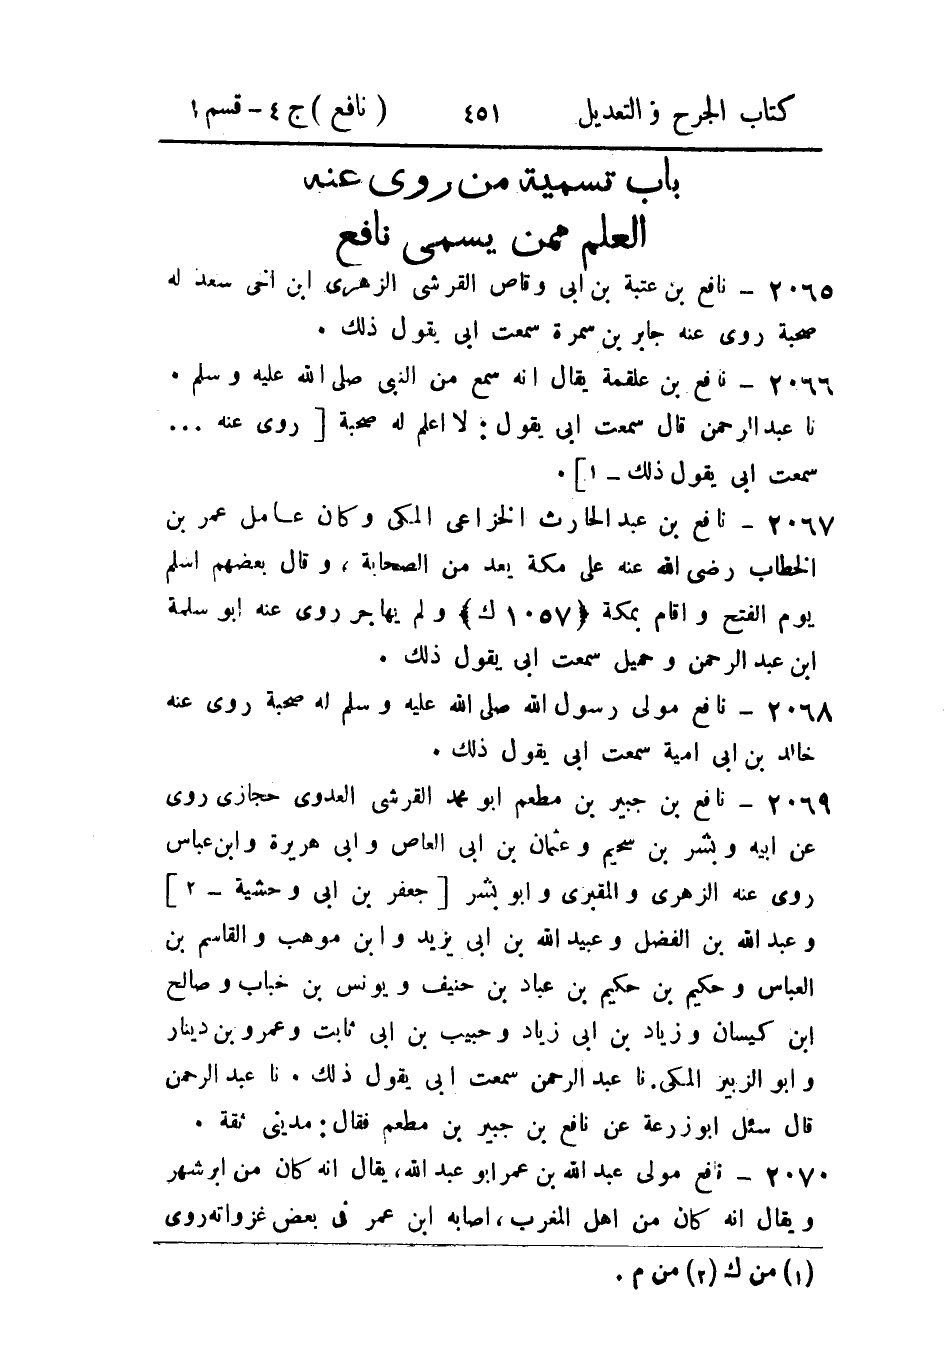 كتاب الجرح والتعديل ٤٥١ (نافع) ج ٤ – قسم ١
باب تسمية من روى عنه
العلم ممن يسمى نافع
٢٠٦٥ – نافع بن عتبة بن ابى وقاص القرشى الزهرى ابن اخى سعد له
صحبة روى عنه جابر بن سمرة سمعت ابى يقول ذلك .
٢٠٦٦ – نافع بن علقمة يقال انه سمع من النبى صلى الله عليه وسلم .
نا عبد الرحمن قال سمعت ابى يقول : لا اعلم له صحبة [ روى عنه ...
سمعت ابى يقول ذلك – ١ ] .
٢٠٦٧ – نافع بن عبد الحارث الخزاعى المكى وكان عامل عمر بن
الخطاب رضى الله عنه على مكة يعد من الصحابة ، وقال بعضهم اسلم
يوم الفتح و اقام بمكة ﴿١٠٥٧ ك﴾ و لم يهاجر روى عنه ابو سلمة
ابن عبد الرحمن و حميل سمعت ابى يقول ذلك .
٢٠٦٨ – نافع مولى رسول الله صلى الله عليه وسلم له صحبة روى عنه
خالد بن ابى امية سمعت ابى يقول ذلك .
٢٠٦٩ – نافع بن جبير بن مطعم ابو محمد القرشى العدوى حجازى روى
عن ابيه وبشر بن سحيم وعثمان بن ابى العاص وابى هريرة وابن عباس
روى عنه الزهرى والمقبرى وابو بشر [ جعفر بن ابى وحشية – ٢ ]
وعبد الله بن الفضل وعبيد الله بن ابى يزيد وابن موهب والقاسم بن
العباس وحكيم بن حكيم بن عباد بن حنيف ويونس بن خباب وصالح
ابن كيسان وزياد بن ابى زياد وحبيب بن ابى ثابت وعمرو بن دينار
وابو الزبير المكى. نا عبد الرحمن سمعت ابى يقول ذلك . نا عبد الرحمن
قال سئل ابو زرعة عن نافع بن جبير بن مطعم فقال : مدينى ثقة .
٢٠٧٠ – نافع مولى عبد الله بن عمر ابو عبد الله، يقال انه كان من ابرشهر
ويقال انه كان من اهل المغرب، اصابه ابن عمر فى بعض غزواته روى
(١) من ك (٢) من م .